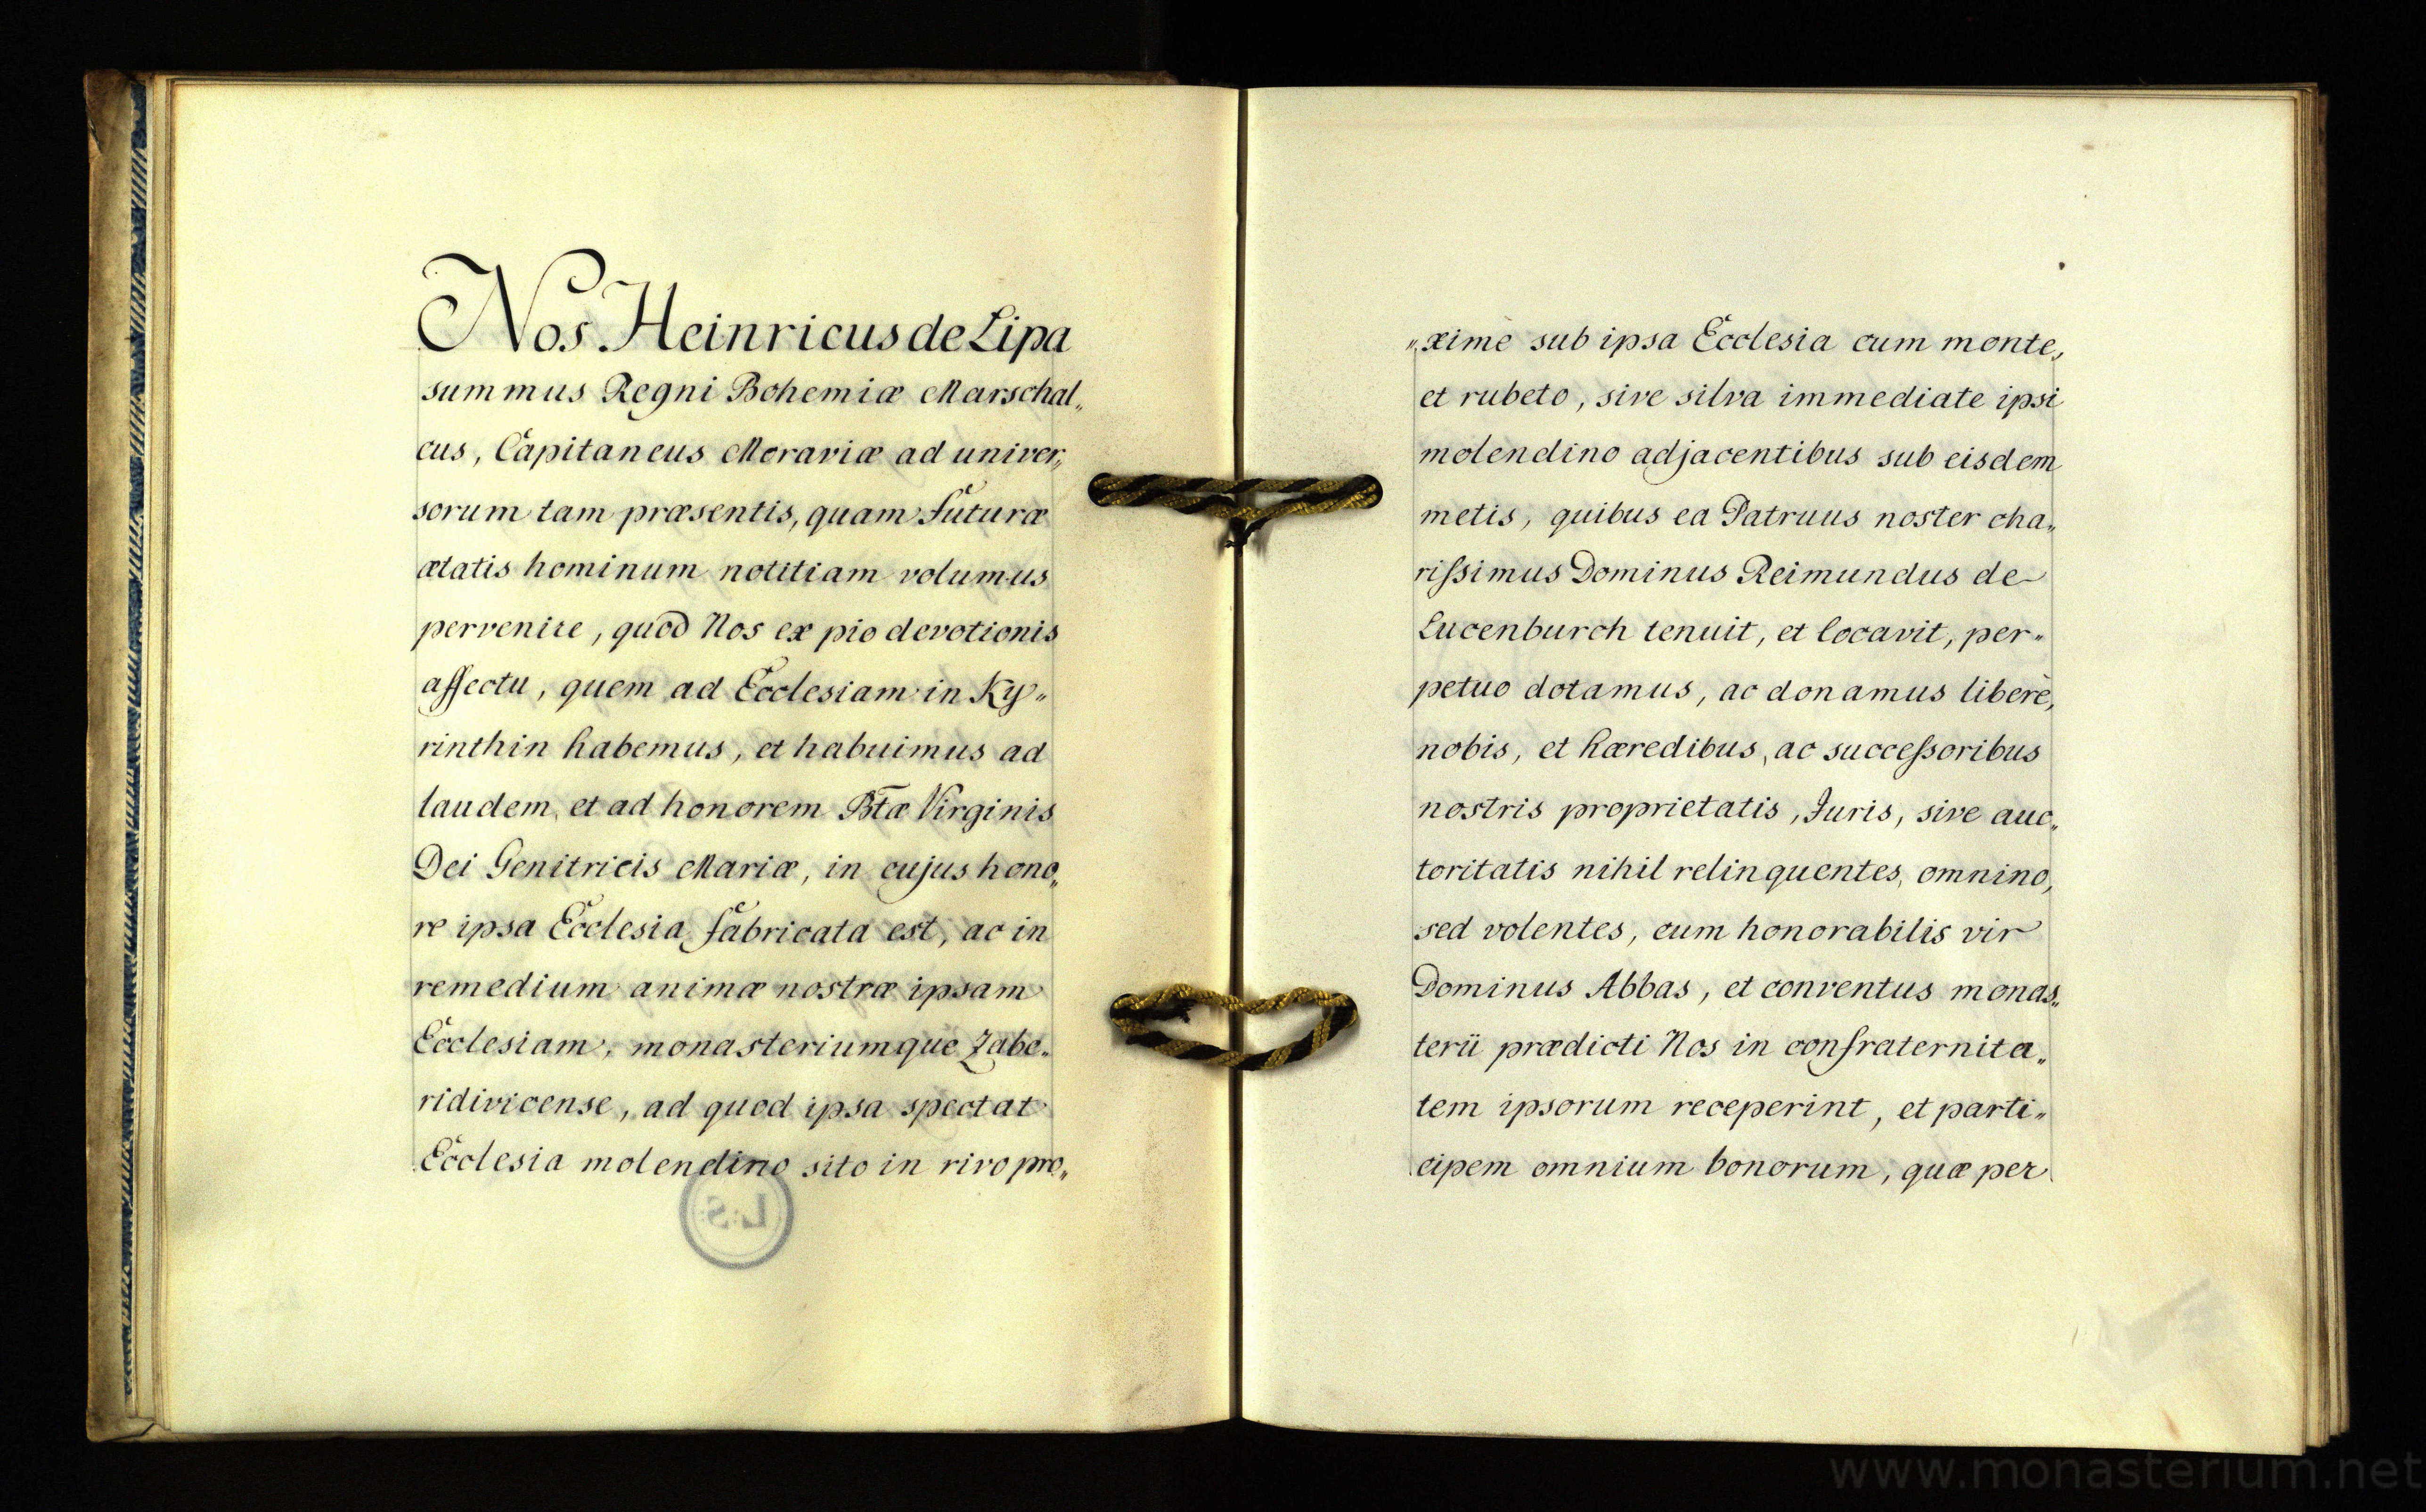 Nos Heinricus de Lipa
summus Regni Bohemiæ Marschal„
cus, Capitaneus Moraviæ ad univer„
sorum tam præsentis, quam futuræ
ætatis hominum notitiam volumus
pervenire, quod Nos ex pio devotionis
affectu, quem ad Ecclesiam in Ky„
rinthin habemus, et habuimus ad
laudem, et ad honorem Btæ Virginis
Dei Genitricis Mariæ, in cujus hono„
re ipsa Ecclesia fabricata est, ac in
remedium animæ nostræ ipsam
Ecclesiam, monasteriumque Zabe„
ridivicense, ad quod ipsa spectat
Ecclesia molendino sito in rivo pro„
L:S:
„ximè sub ipsa Ecclesia cum monte,
et rubeto, sive silva immediate ipsi
molendino adjacentibus sub eisdem
metis, quibus ea Patruus noster cha„
rißimus Dominus Reimundus de
Lucenburch tenuit, et locavit, per„
petuo dotamus, ac donamus liberè,
nobis, et hæredibus, ac succeßoribus
nostris proprietatis, Juris, sive auc„
toritatis nihil relinquentes, omnino,
sed volentes, cum honorabilis vir
Dominus Abbas, et conventus monas„
terii prædicti Nos in confraternita„
tem ipsorum receperint, et parti„
cipem omnium bonorum, quæ per
www.monasterium.net